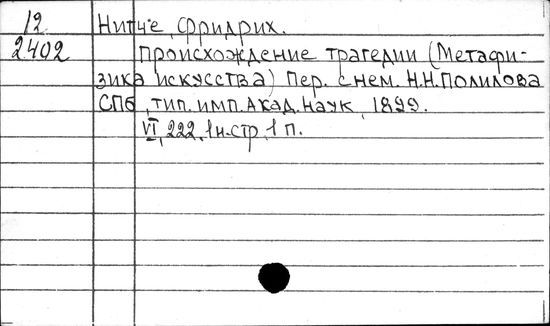 12 Нитче, Фридрих.
2402 Происхождение трагедии (Метафи-
зика искусства) Пер. с нем. Н.Н. Полилова
СПб, тип. имп. Акад. Наук, 1899.
VI, 222, 1 н. стр, 1 п.